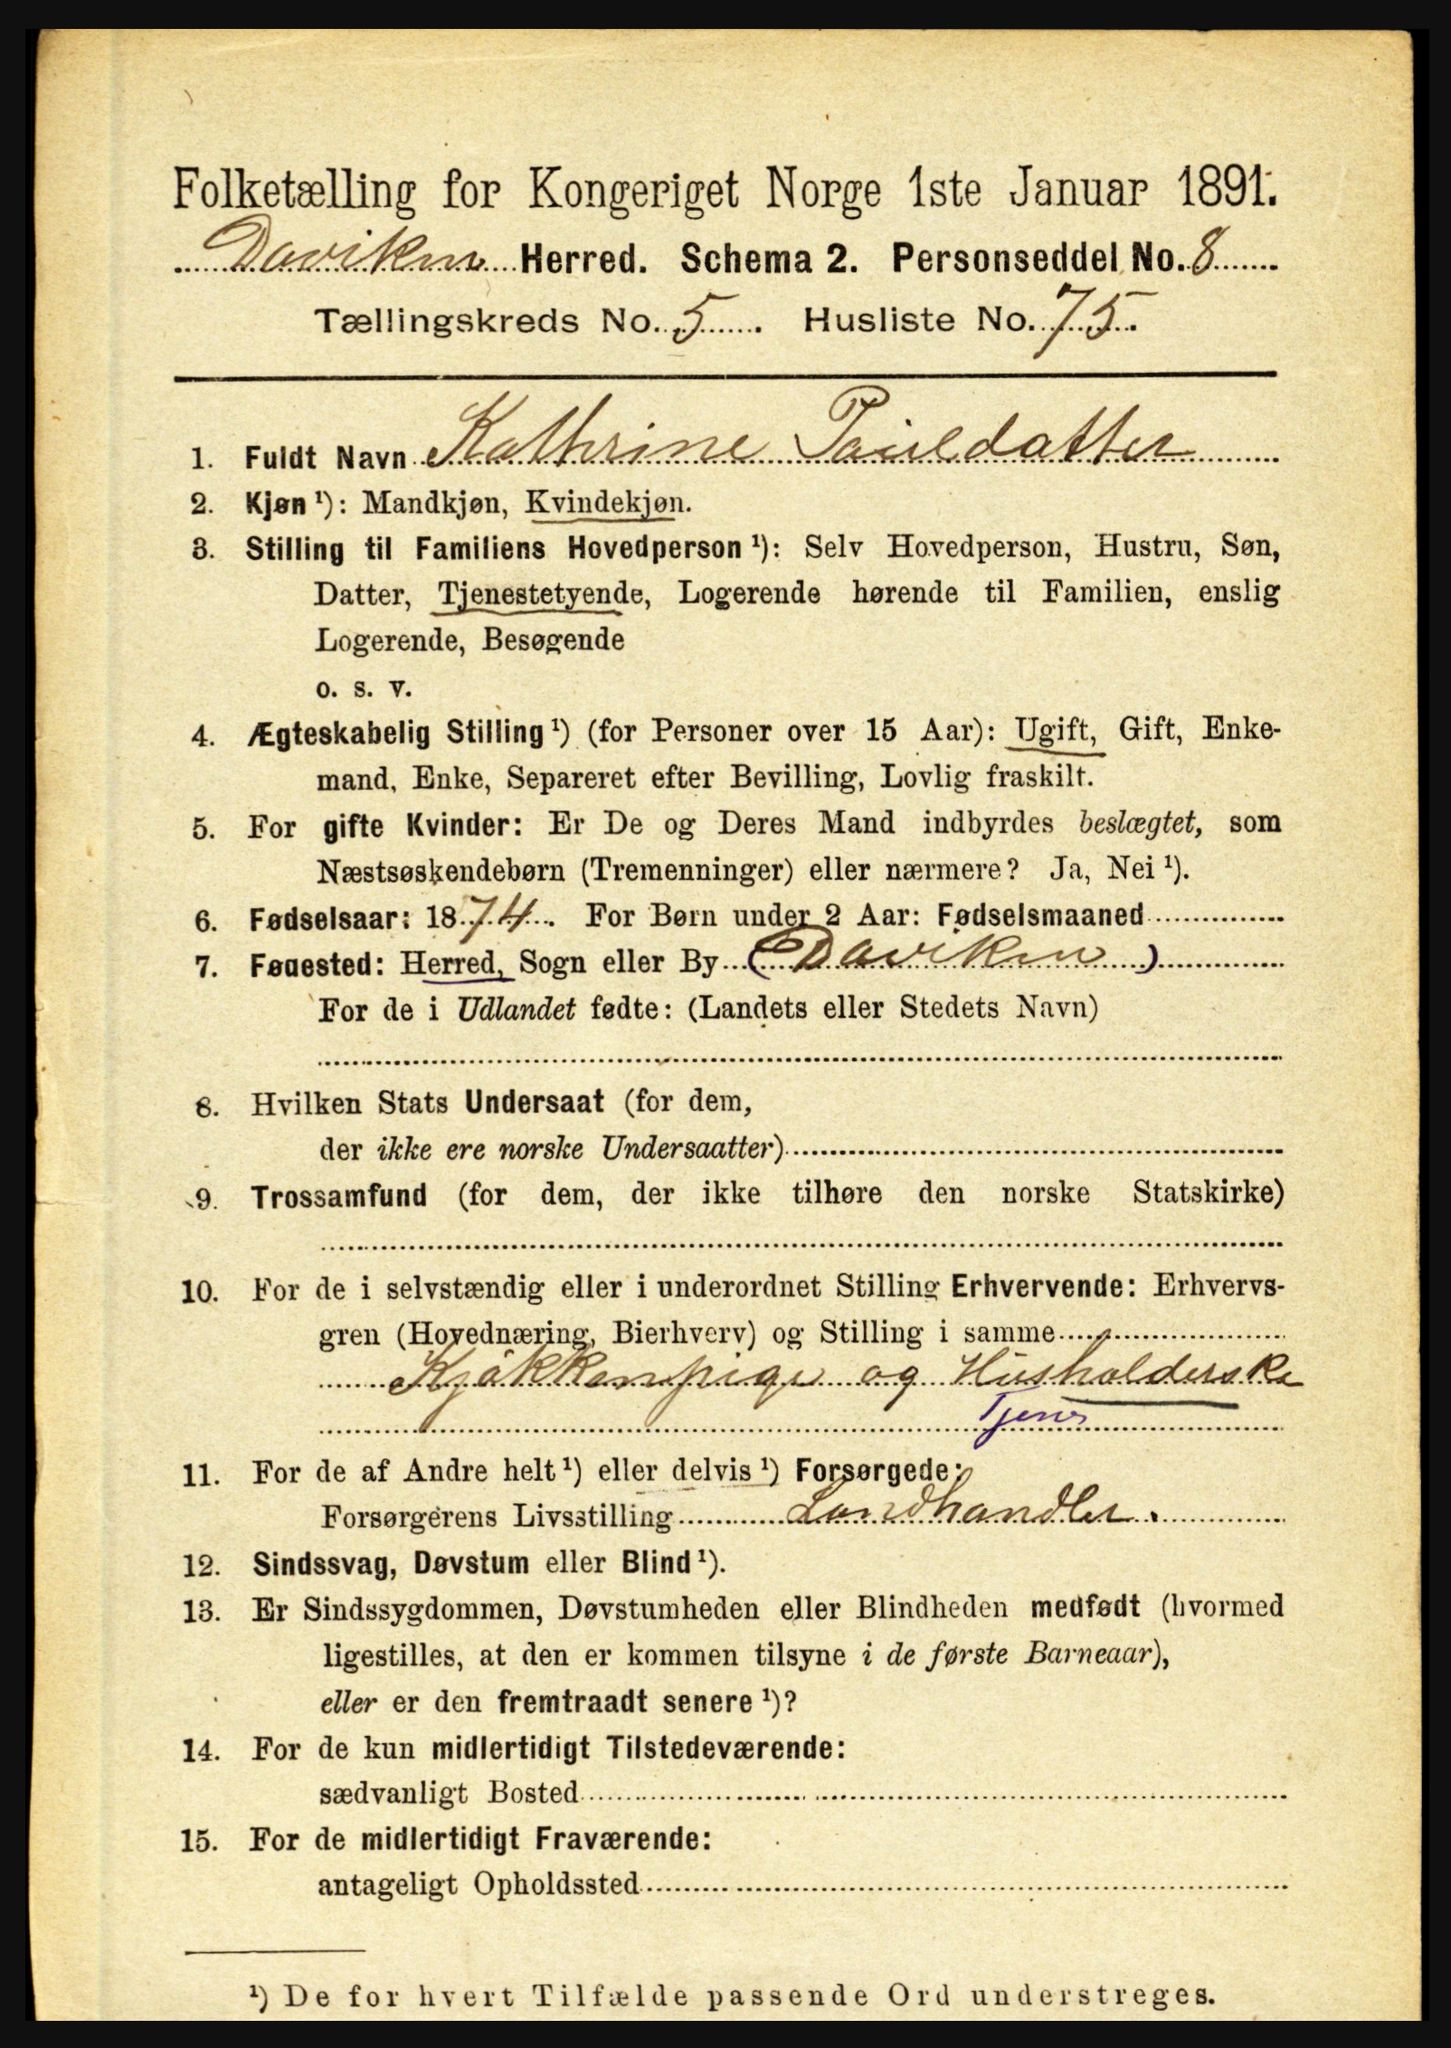 Folketælling for Kongeriget Norge 1ste Januar 1891.
Daviken Herred. Schema 2. Personseddel No. 8
Tællingskreds No. 5. Husliste No. 75.
1. Fuldt Navn Kathrine Paulsdatter
2. Kjøn ¹): Mandkjøn, Kvindekjøn.
3. Stilling til Familiens Hovedperson ¹): Selv Hovedperson, Hustru, Søn,
Datter, Tjenestetyende, Logerende hørende til Familien, enslig
Logerende, Besøgende
o. s. v.
4. Ægteskabelig Stilling ¹) (for Personer over 15 Aar): Ugift, Gift, Enke-
mand, Enke, Separeret efter Bevilling, Lovlig fraskilt.
5. For gifte Kvinder: Er De og Deres Mand indbyrdes beslægtet, som
Næstsøskendebørn (Tremenninger) eller nærmere? Ja, Nei ¹).
6. Fødselsaar: 1874. For Børn under 2 Aar: Fødselsmaaned
7. Fødested: Herred, Sogn eller By (Daviken)
For de i Udlandet fødte: (Landets eller Stedets Navn)
8. Hvilken Stats Undersaat (for dem,
der ikke ere norske Undersaatter)
9. Trossamfund (for dem, der ikke tilhøre den norske Statskirke)
10. For de i selvstændig eller i underordnet Stilling Erhvervende: Erhvervs-
gren (Hovednæring, Bierhverv) og Stilling i samme
Kjøkkenpige og Husholderske
Tjener
11. For de af Andre helt ¹) eller delvis ¹) Forsørgede:
Forsørgerens Livsstilling Landhandler.
12. Sindssvag, Døvstum eller Blind ¹).
13. Er Sindssygdommen, Døvstumheden eller Blindheden medfødt (hvormed
ligestilles, at den er kommen tilsyne i de første Barneaar),
eller er den fremtraadt senere ¹)?
14. For de kun midlertidigt Tilstedeværende:
sædvanligt Bosted
15. For de midlertidigt Fraværende:
antageligt Opholdssted
¹) De for hvert Tilfælde passende Ord understreges.